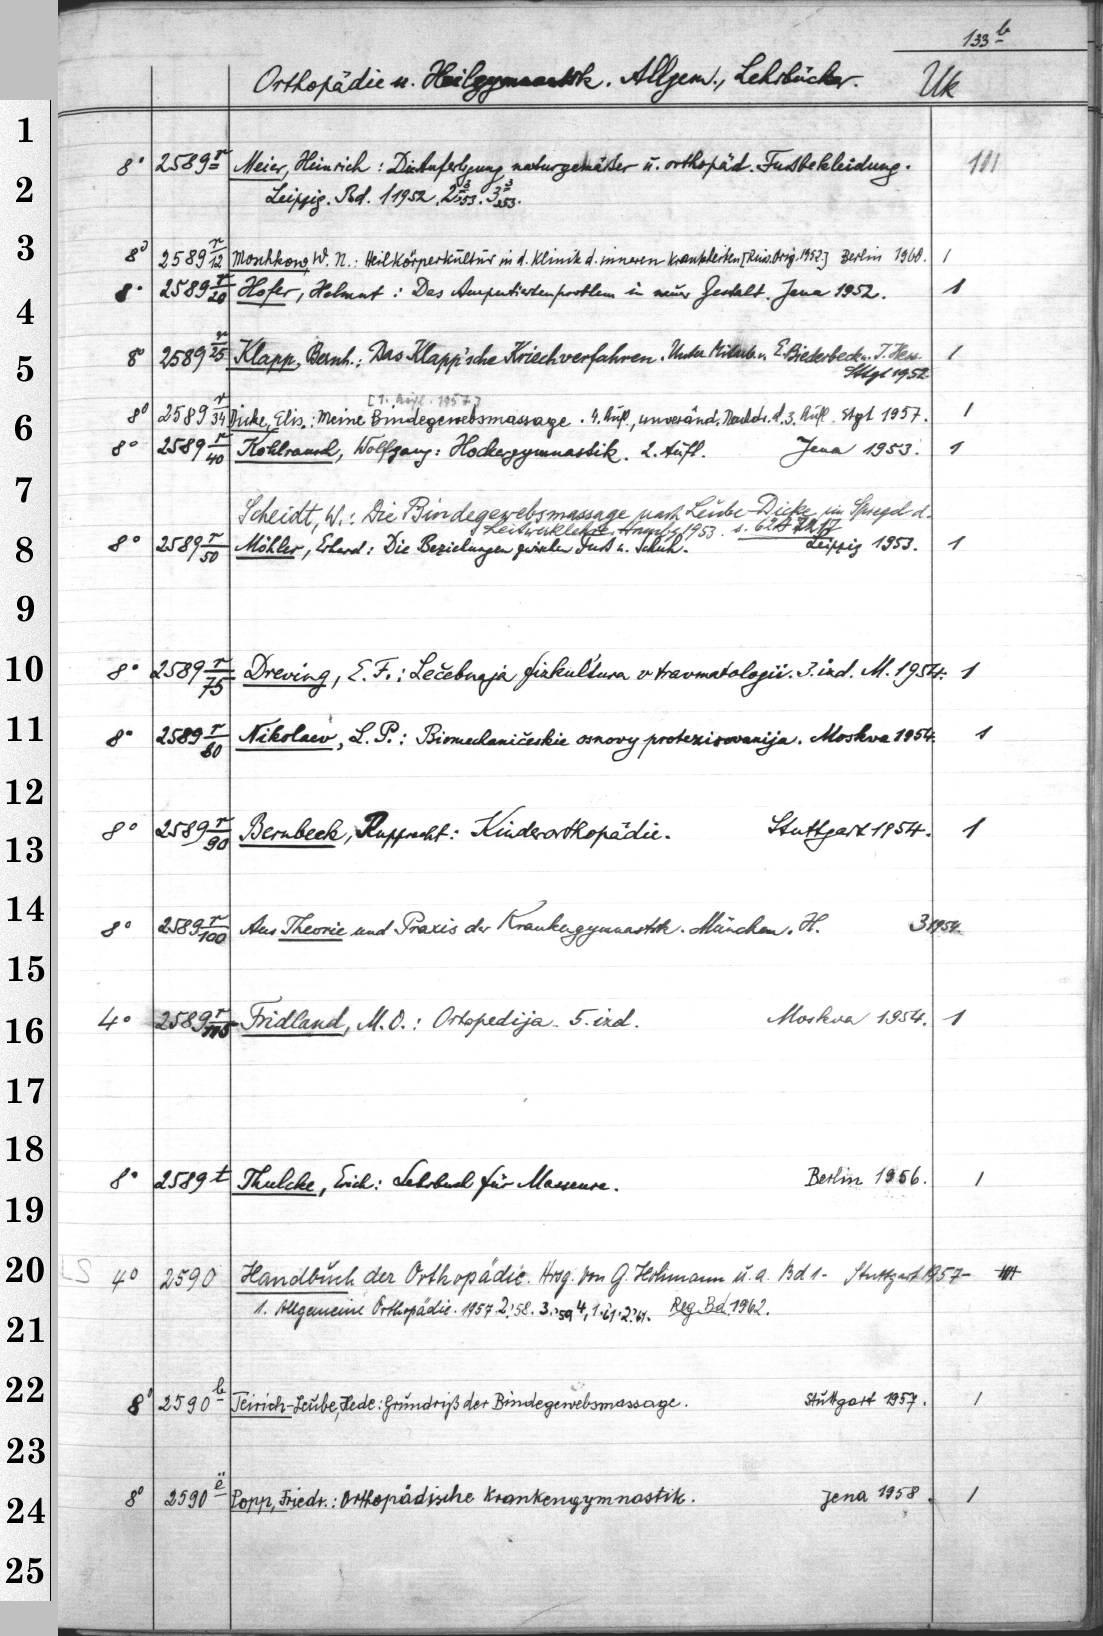 133 b
Orthopädie u. Heilgymnastik. Allgem., Lehrbücher. Uk
1
8° 2589 r Meier, Heinrich: Die Anfertigung naturgemäßer u. orthopäd. Fussbekleidung. III
2
Leipzig. Bd. 1 1952. 2 ³1953. 3 ³1953.
3
8° 2589 r/12 Moschkow, W. N.: Heilkörperkultur in d. Klinik d. inneren Krankheiten [Russ. Orig. 1952.] Berlin 1960. 1
8° 2589 r/20 Hofer, Helmut: Das Amputiertenproblem in neuer Gestalt. Jena 1952. 1
4
8° 2589 r/25 Klapp, Bernh.: Das Klapp'sche Kriechverfahren. Unter Mitarb. v. E. Biederbeck u. T. Hess. 1
5
Sttgt 1952
[1. Aufl. 1957]
8° 2589 r/34 Dicke, Elis.: Meine Bindegewebsmassage. 4. Aufl., unveränd. Neudr. d. 3. Aufl. Stgt 1957. 1
6
8° 2589 r/40 Kohlrausch, Wolfgang: Hockergymnastik. 2. Aufl. Jena 1953. 1
7
Scheidt, W.: Die Bindegewebsmassage nach Leube-Dicke im Spiegel d.
Leitwerklehre. Hamburg 1953. s.
8
8° 2589 r/50 Möhler, Erhard: Die Beziehungen zwischen Fuß u. Schuh. Leipzig 1953. 1
9
10
8° 2589 r/75 Dreving, E. F.: Lečebnaja fizkul'tura v travmatologii. 3. izd. M. 1954. 1
11
8° 2589 r/80 Nikolaev, L. P.: Biomechaničeskie osnovy protezirovanija. Moskva 1954. 1
12
8° 2589 r/90 Bernbeck, Rupprecht: Kinderorthopädie. Stuttgart 1954. 1
13
14
8° 2589 r/100 Aus Theorie und Praxis der Krankengymnastik. München. H. 3 1954.
15
4° 2589 r/115 Fridland, M. O.: Ortopedija. 5. izd. Moskva 1954. 1
16
17
18
8° 2589 t Thulcke, Erich: Lehrbuch für Masseure. Berlin 1956. 1
19
20
LS 4° 2590 Handbuch der Orthopädie. Hrsg. von G. Hohmann u. a. Bd 1- Stuttgart 1957-
1. Allgemeine Orthopädie. 1957. 2. '58. 3. '59 4, 1. '61. 2. '61. Reg. Bd. 1962.
21
22
8° 2590 b Teirich-Leube, Hede: Grundriß der Bindegewebsmassage. Stuttgart 1957. 1
23
8° 2590 ë Popp, Friedr.: Orthopädische Krankengymnastik. Jena 1958. 1
24
25